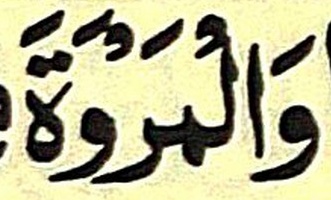 وَالْمَرْوَةَ